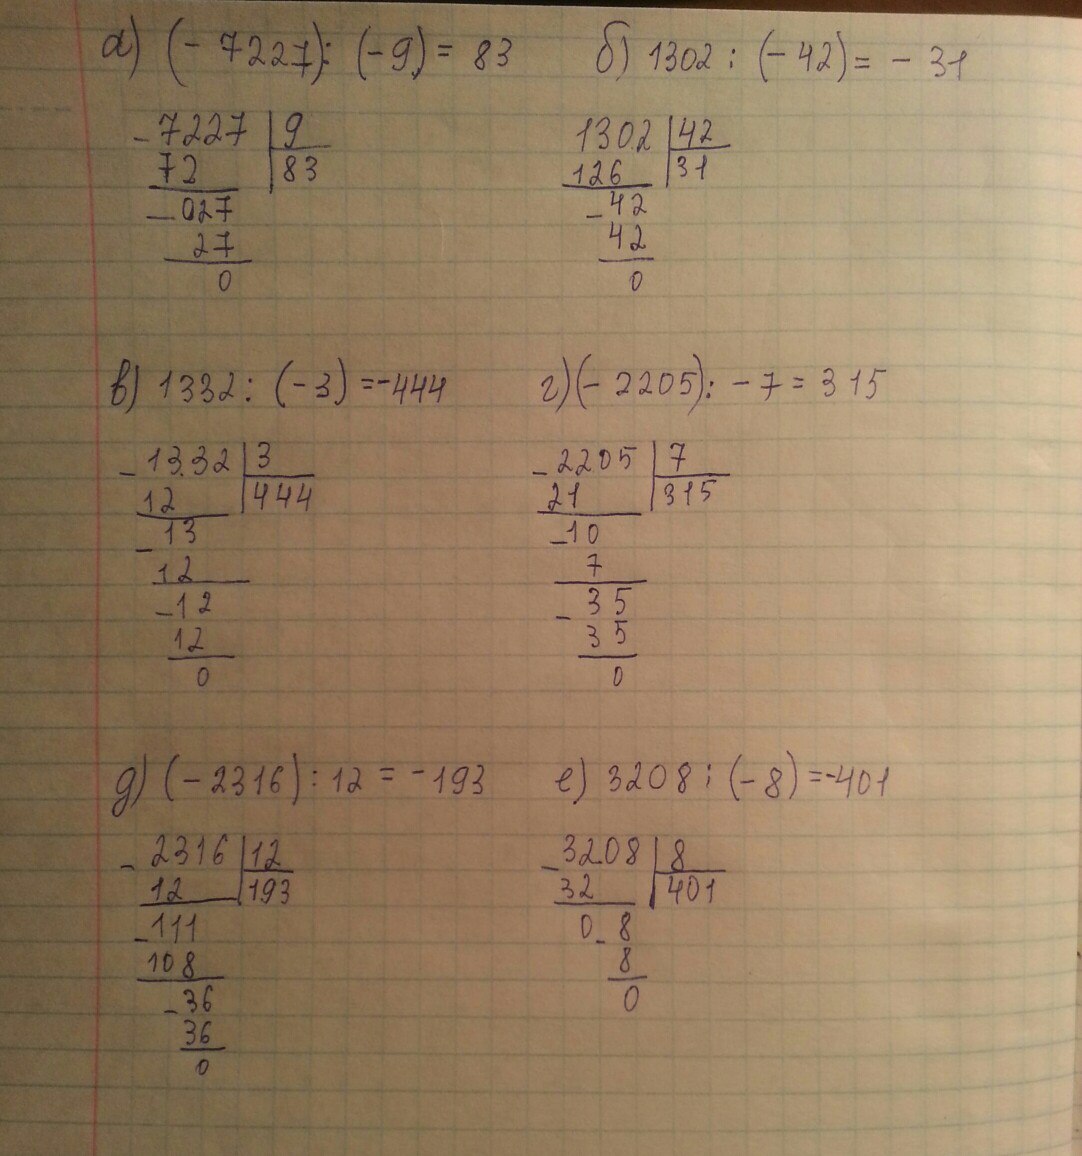 а) (- 7227) : (-9) = 83
б) 1302 : (-42) = - 31
- 7227 | 9
72 | 83
- 027
27
0
1302 | 42
126 | 31
- 42
42
0
в) 1332 : (-3) = -444
г) (- 2205) : - 7 = 315
- 1332 | 3
12 | 444
- 13
12
- 12
12
0
- 2205 | 7
21 | 315
- 10
7
- 35
35
0
д) (- 2316) : 12 = - 193
е) 3208 : (-8) = -401
- 2316 | 12
12 | 193
- 111
108
- 36
36
0
- 3208 | 8
32 | 401
0 - 8
8
0